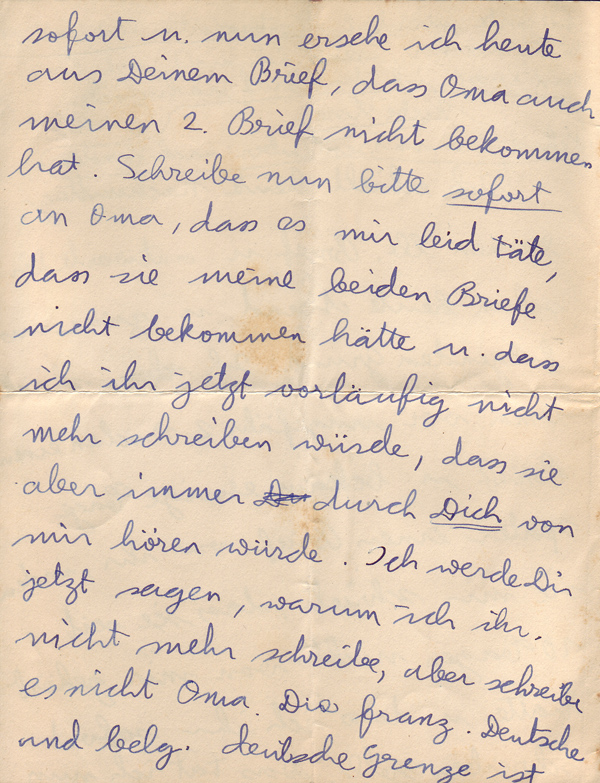 sofort u. nun ersehe ich heute
aus Deinem Brief, dass Oma auch
meinen 2. Brief nicht bekommen
hat. Schreibe nun bitte sofort
an Oma, dass es mir leid täte,
dass sie meine beiden Briefe
nicht bekommen hätte u. dass
ich ihr jetzt vorläufig nicht
mehr schreiben würde, dass sie
aber immer Du durch Dich von
mir hören würde. Ich werde Dir
jetzt sagen, warum ich ihr.
nicht mehr schreibe, aber schreibe
es nicht Oma. Die franz. Deutsche
und belg. deutsche Grenze ist